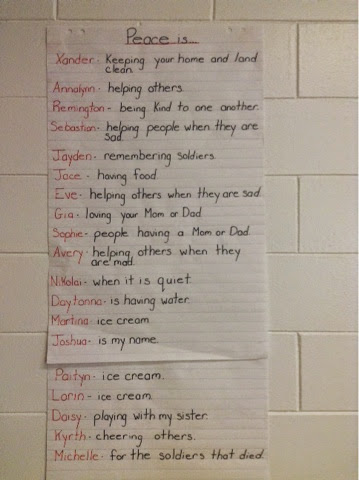 Peace is...
Xander- Keeping your home and land
clean.
Annalynn- helping others.
Remington- being kind to one another.
Sebastian- helping people when they are
sad.
Jayden- remembering soldiers.
Jace- having food.
Eve- helping others when they are sad.
Gia- loving your Mom or Dad.
Sophie- people having a Mom or Dad.
Avery- helping others when they
are mad.
Nikolai- when it is quiet.
Daytonna- is having water.
Martina- ice cream.
Joshua- is my name.
Paityn- ice cream.
Lorin- ice cream.
Daisy- playing with my sister.
Kyrth- cheering others.
Michelle- for the soldiers that died.